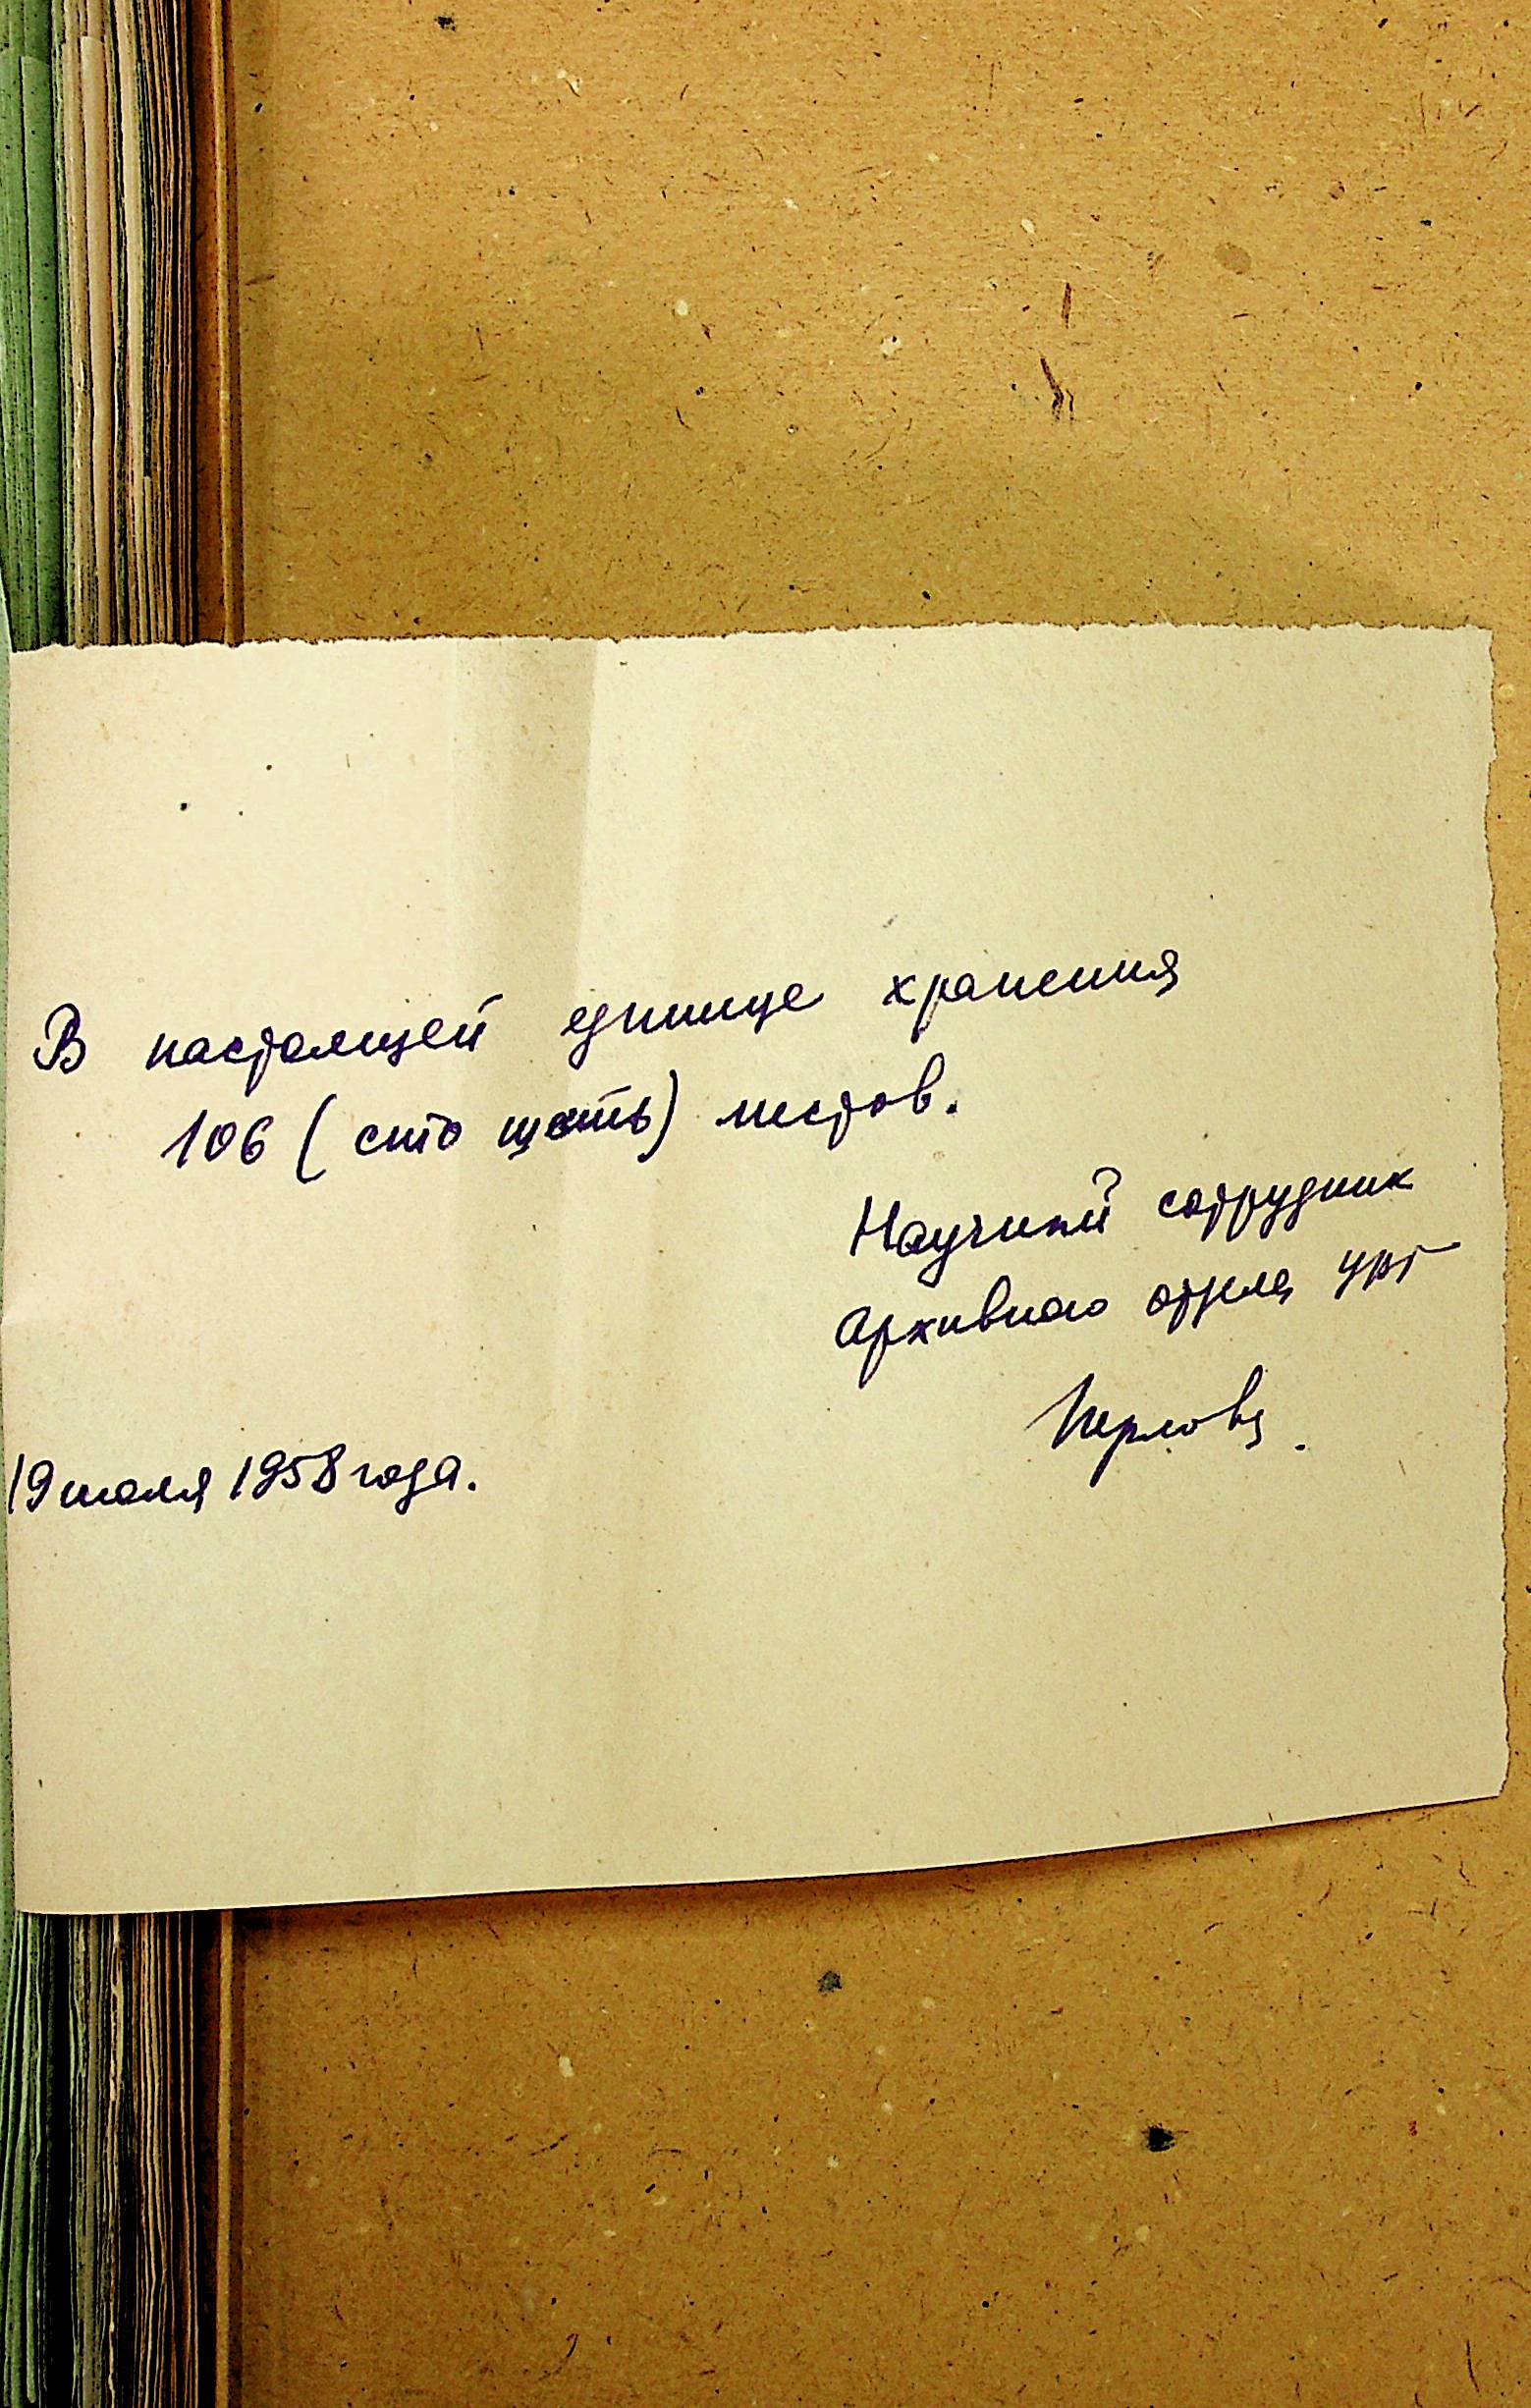 В настоящей единице хранения
106 (сто шесть) листов.
Научный сотрудник
Архивного отдела
19 июля 1958 года.